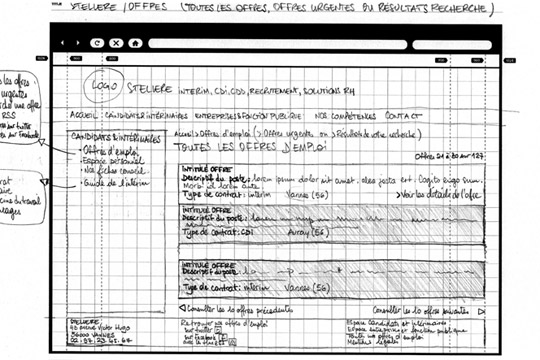 STELIERE / OFFRES (TOUTES LES OFFRES, OFFRES URGENTES OU RÉSULTATS RECHERCHE)
LOGO STELIERE INTERIM, CDI, CDD, RECRUTEMENT, SOLUTIONS RH
ACCUEIL CANDIDATS & INTÉRIMAIRES ENTREPRISES & FONCTION PUBLIQUE NOS COMPÉTENCES CONTACT
CANDIDATS & INTÉRIMAIRES
• Offres d'emploi
• Espace personnel
• Nos fiches conseil
• Guide de l'intérim
Accueil > Offres d'emploi (> Offres urgentes ou > Résultats de votre recherche)
TOUTES LES OFFRES D'EMPLOI
Offres 21 à 30 sur 127
INTITULÉ OFFRE
Descriptif du poste: lorem ipsum dolor sit amet.
Morbi id lorem ante.
Type de contrat: intérim Vannes (56) > Voir les détails de l'offre
INTITULÉ OFFRE
Descriptif du poste:
Type de contrat: CDI Auray (56)
INTITULÉ OFFRE
Descriptif du poste
Type de contrat: intérim Vannes (56)
Consulter les 10 offres précédentes Consulter les 10 offres suivantes
STELIERE
40 avenue Victor Hugo
56000 VANNES
02.97.23.45.67
Retrouver nos offres d'emploi
sur twitter
sur Facebook
Espace candidats et intérimaires
Espace entreprises et fonction publique
Toutes nos offres d'emploi
Mentions légales
les offres
urgentes
RSS
sur twitter
sur Facebook